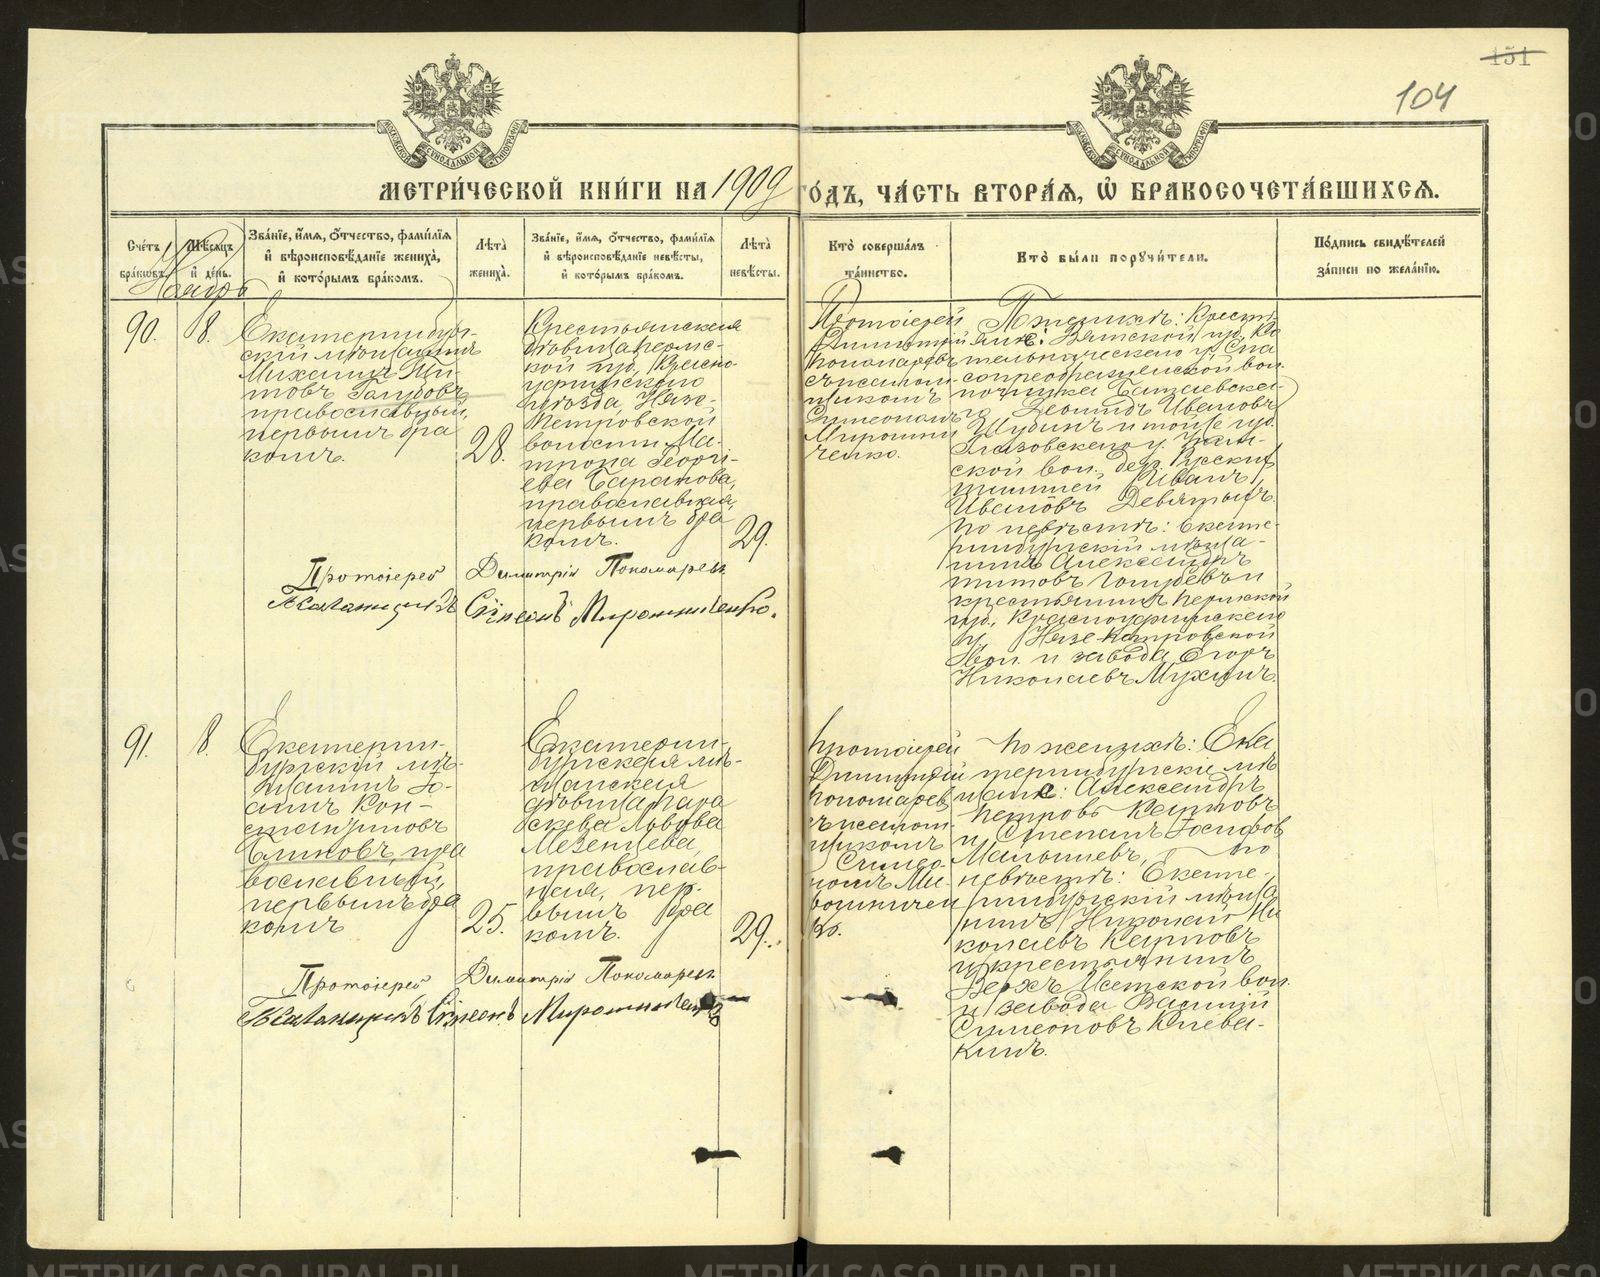 151
104
МОСКОВСКОЙ СѴНОДАЛЬНОЙ ТИПОГРАФІИ
МОСКОВСКОЙ СѴНОДАЛЬНОЙ ТИПОГРАФІИ
МЕТРИ́ЧЕСКОЙ КНИ́ГИ НА 1909 ГО́ДЪ, ЧА́СТЬ ВТОРА́Я, Ѡ҆ БРАКОСОЧЕТА́ВШИХСЯ.
Сче́тъ бра́ковъ.
Мѣ́сяцъ и҆ де́нь.
Зва́нїе, и҆́мя, ѻ҆́тчество, фамі́лїя и҆ вѣроисповѣ́данїе жениха̀, и҆ кото́рымъ бра́комъ.
Лѣ́та жениха̀.
Зва́нїе, и҆́мя, ѻ҆́тчество, фамі́лїя и҆ вѣроисповѣ́данїе невѣ́сты, и҆ кото́рымъ бра́комъ.
Лѣ́та невѣ́сты.
Кто̀ соверша́лъ та́инство.
Кто̀ бы́ли поручи́тели.
По́дпись свидѣ́телей за́писи по жела́нїю.
Ноябрь
90.
8.
Екатеринбург-
скій мѣщанинъ
Михаилъ Ти-
товъ Голубовъ,
православный,
первымъ бра
комъ.
28.
Крестьянская
дѣвица Пермс-
кой губ., Красно-
уфимскаго
уѣзда, Нязе-
Петровской
волости Ма-
трона Георгі-
ева Баранова,
православная,
первымъ бра
комъ.
29.
Протоіерей
Димитрій
Пономаревъ
съ псалом-
щикомъ
Симеономъ
Мирошни
ченко.
По женихѣ: Крест-
яне: Вятской губ. Ко
тельническаго у. Спа
сопреображенской вол.
починка Баталевска-
го Леонидъ Ивановъ
Шубинъ и тойже губ.
Глазовскаго у.
ской вол. дер.
Иванъ
Ивановъ Девятыхъ.
По невѣстѣ: Екате-
ринбургскій мѣща-
нинъ Александръ
Титовъ Голубевъ и
крестьянинъ Пермской
губ., Красноуфимскаго
у. Нязе-Петровской
вол. и завода Егоръ
Николаевъ Мухинъ.
Протоіерей Димитрій Пономаревъ.
Псаломщикъ Сімеонъ Мирошниченко.
91.
8.
Екатерин-
бургскій мѣ-
щанинъ Іо-
аннъ Кон-
стантиновъ
Блиновъ, пра
вославный,
первымъ бра
комъ
25.
Екатерин-
бургская мѣ-
щанская
дѣвица Пара
скева Львова
Мезенцева,
православ-
ная, пер-
вымъ бра
комъ.
29.
Протоіерей
Димитрій
Пономаревъ
съ псалом-
щикомъ
Симео-
номъ Ми-
рошничен
ко.
По женихѣ: Ека
теринбургскіе мѣ
щане: Александръ
Петровъ Карповъ
и Степанъ Іосифов
Малышевъ, по
невѣстѣ: Екате-
ринбургскій мѣща
нинъ Николай Ни
колаевъ Карповъ
и крестьянинъ
Верхъ Исетской вол.
и завода Василій
Симеоновъ Клева-
кинъ.
Протоіерей Димитрій Пономаревъ.
Псаломщикъ Сімеонъ Мирошниченко
METRIKI.CASO-URAL.RU